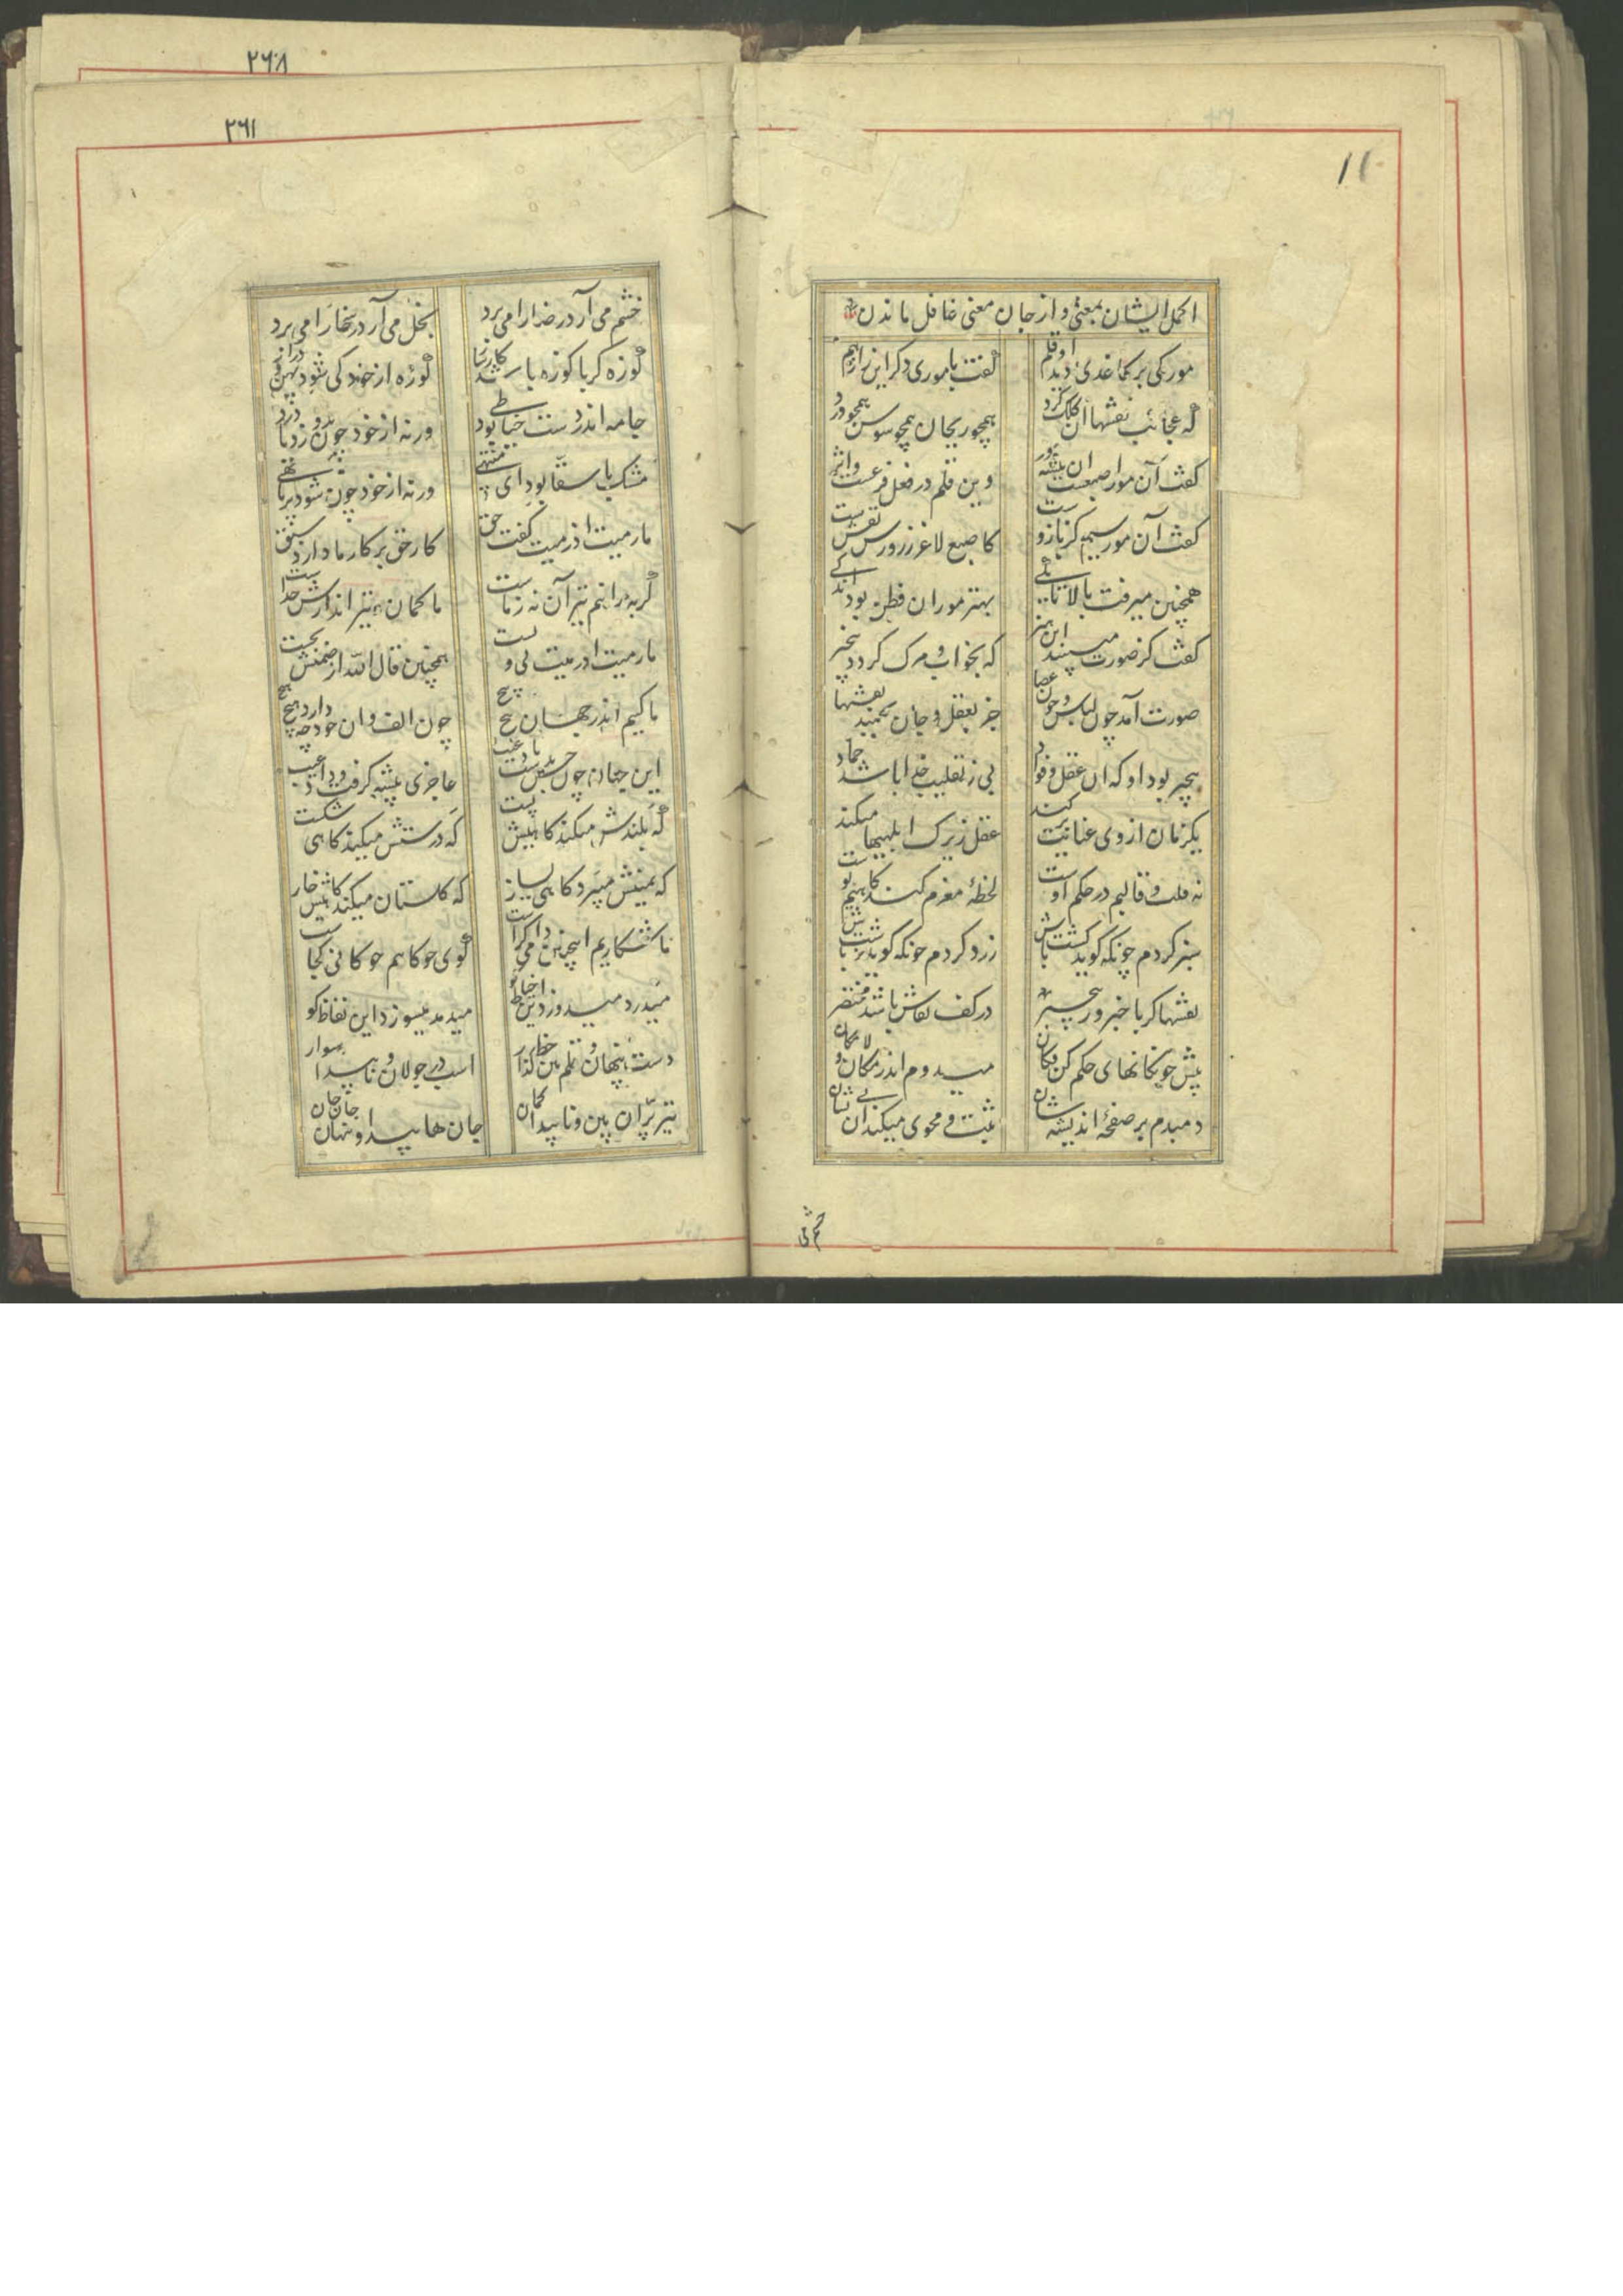 ۲۶۸
۲۶۱
اکمل ایشان بمعنی و از جان معنی غافل ماندن
مورکی بر کاغذی دید او قلم گفت با موری دگر این راز هم
که عجائب نقشها آن کلک کرد همچو ریحان همچو سوسن همچو ورد
گفت آن مور اصبعست آن پیشه ور وین قلم در فعل فرعست و اثر
گفت آن مور سیم کز بازو ست کاصبع لاغر ز زورش نقش بست
همچنین میرفت بالا تا یکی بهتر موران فطن بود اندکی
گفت کز صورت مبینید این هنر که بخواب و مرگ گردد بیخبر
صورت آمد چون لباس و چون عصا جز بعقل و جان نجنبد نقشها
بیخبر بود او که آن عقل و فواد بی ز تقلیب خدا باشد جماد
یکزمان از وی عنایت کند عقل زیرک ابلهیها میکند
نه قلب و قالبم در حکم اوست لحظهٔ مغزم کند گاهیم پوست
سبز گردم چونکه گوید کشت باش زرد گردم چونکه گوید زشت باش
نقشها گر با خبر ور بیخبر در کف نقاش باشد مختصر
پیش چوگانهای حکم کن فکان میدوم اندر مکان و لامکان
دمبدم بر صفحهٔ اندیشه شان ثبت و محوی میکند آن بی نشان
خشم می
خشم می آرد رضا را می برد بخل می آرد سخا را می برد
کوزه گر با کوزه باشد کارساز کوزه از خود کی شود پهن و دراز
جامه اندر دست خیاطی بود ورنه از خود چون بدوزد یا درد
مشک با سقا بود ای منتهی ورنه از خود چون شود پر یا تهی
ما رمیت اذ رمیت گفت حق کار حق بر کار ما دارد سبق
گر بپرانیم تیر آن نه ز ماست ما کمان و تیر اندازش خداست
ما رمیت اذ رمیت بی ویست همچنین قال الله از صمتش بجست
ما کییم اندر جهان پیچ پیچ چون الف و ان خود چه دارد هیچ هیچ
این جهان چون خس بدست باد غیب عاجزی پیشه گرفت و داد غیب
گه بلندش میکند گاهیش پست گه درستش میکند گاهی شکست
گه یمینش میبرد گاهی یسار گه گلستان میکند گاهیش خار
ما شکاریم اینچنین دامی کراست گوی چوگانیم چوگانی کجاست
میدرد میدوزد این خیاط کو میدمد میسوزد این نفاط کو
دست پنهان و قلم بین خط گذار اسب در جولان و ناپیدا سوار
تیر پران بین و ناپیدا کمان جان ها پیدا و پنهان جان جان